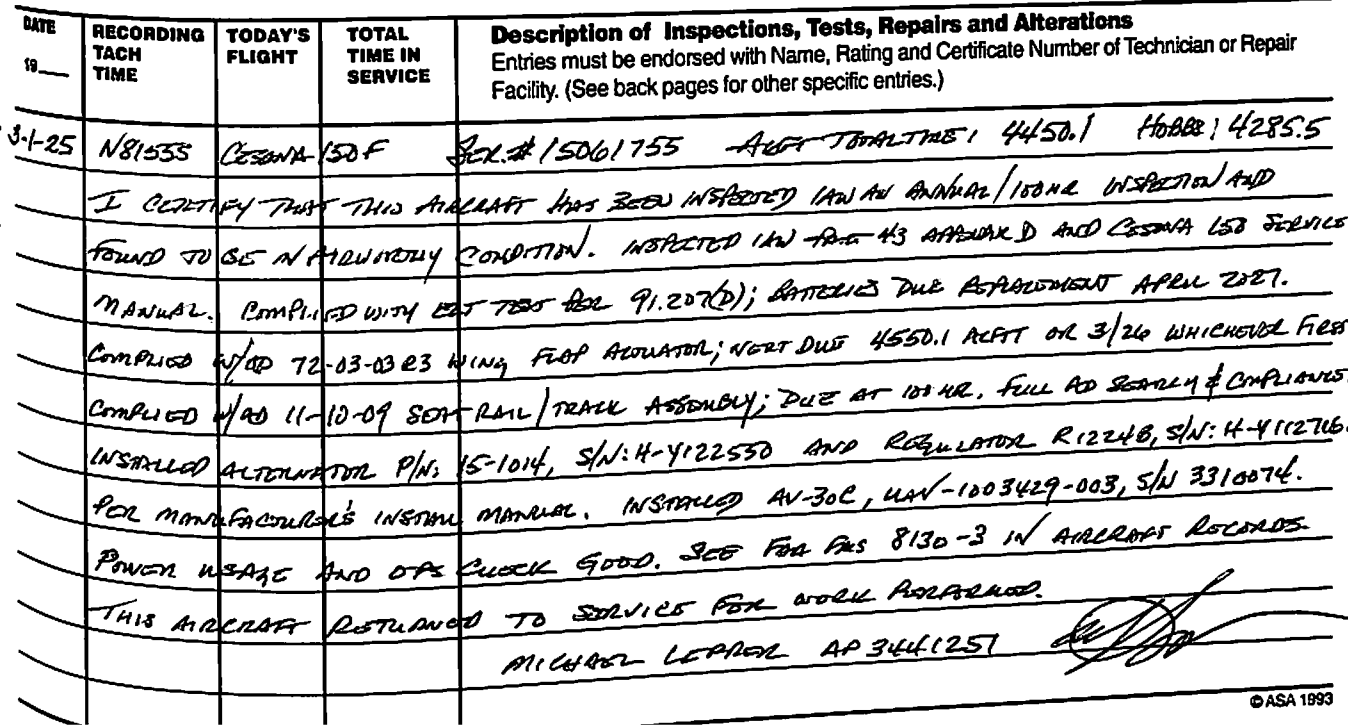 DATE
19___
RECORDING TACH TIME
TODAY'S FLIGHT
TOTAL TIME IN SERVICE
Description of Inspections, Tests, Repairs and Alterations
Entries must be endorsed with Name, Rating and Certificate Number of Technician or Repair
Facility. (See back pages for other specific entries.)
3-1-25 N81555 CESSNA 150F SER.# 15061755 ACFT TOTAL TIME: 4450.1 HOBBS: 4285.5
I CERTIFY THAT THIS AIRCRAFT HAS BEEN INSPECTED IAW AN ANNUAL/100 HR INSPECTION AND
FOUND TO BE IN AIRWORTHY CONDITION. INSPECTED IAW 43 APPENDIX D AND CESSNA 150 SERVICE
MANUAL. COMPLIED WITH ELT TEST PER 91.207(D); BATTERIES DUE REPLACEMENT APRIL 2027.
COMPLIED W/AD 72-03-03 R3 WING FLAP ACTUATOR; NEXT DUE 4550.1 ACFT OR 3/26 WHICHEVER FIRST
COMPLIED W/AD 11-10-09 SEAT RAIL/TRACK ASSEMBLY; DUE AT 100 HR. FULL AD SEARCH & COMPLIANCE.
INSTALLED ALTERNATOR P/N: 15-1014, S/N: H-Y122550 AND REGULATOR R1224B, S/N: H-Y112716.
PER MANUFACTURER'S INSTALL MANUAL. INSTALLED AV-30C, UAV-1003429-003, S/N 3310074.
POWER USAGE AND OPS CHECK GOOD. SEE 8130-3 IN AIRCRAFT RECORDS.
THIS AIRCRAFT RETURNED TO SERVICE FOR WORK PERFORMED.
MICHAEL LEPPER AP 3441251
© ASA 1993